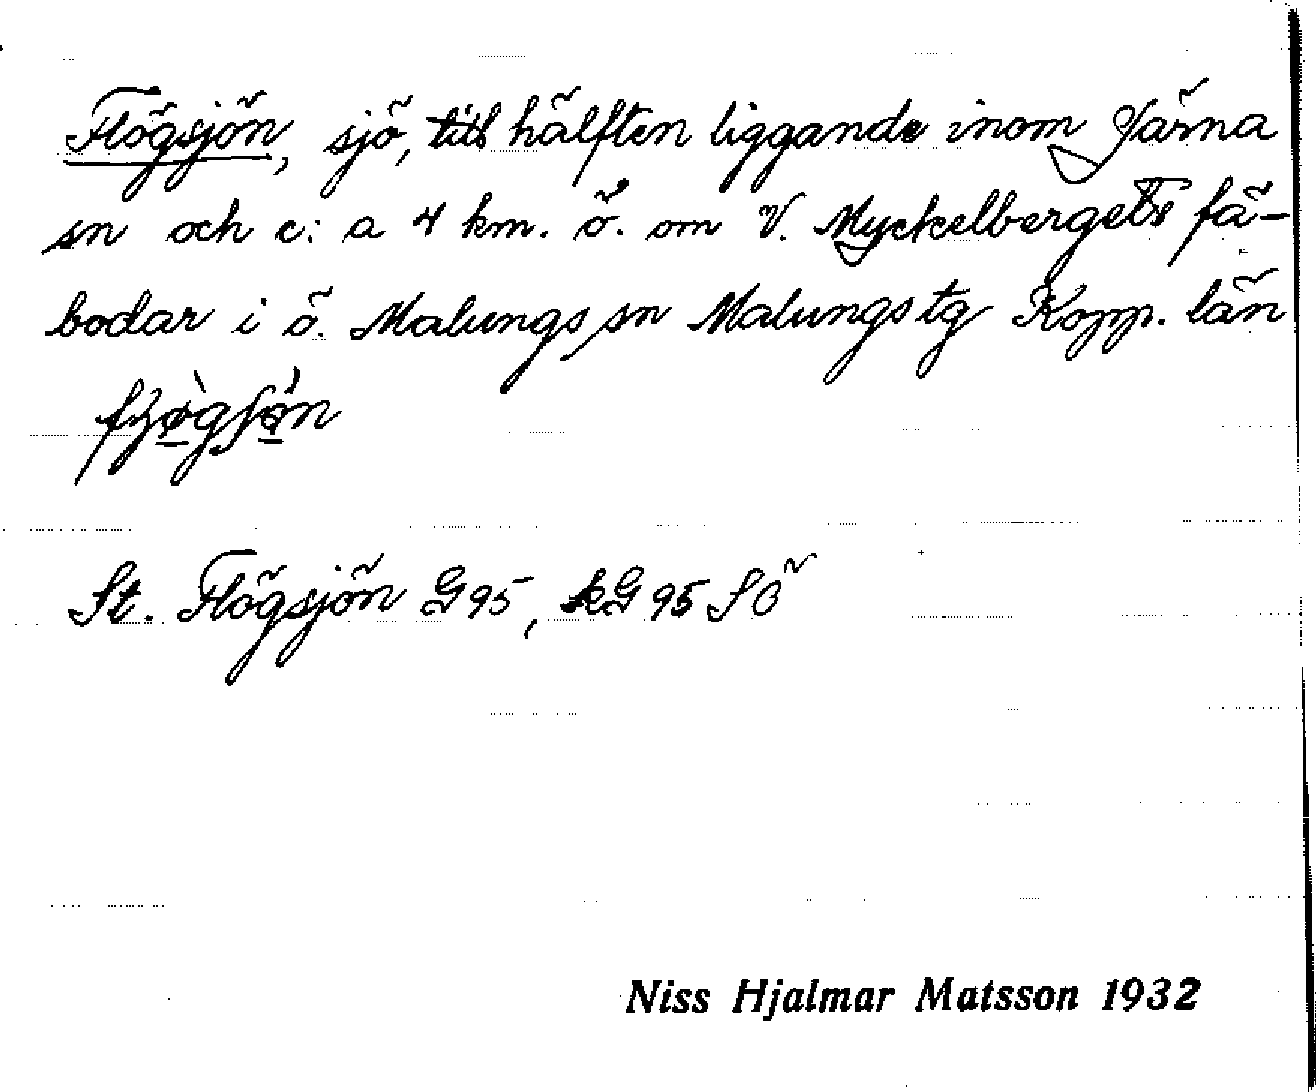 Flögsjön, sjö, till hälften liggande inom Järna
sn och c:a 4 km. ö. om V. Myckelbergets fä-
bodar i ö. Malungs sn Malungs tg Kopp. län
St. Flögsjön G95, kG95 SÖ
Niss Hjalmar Matsson 1932